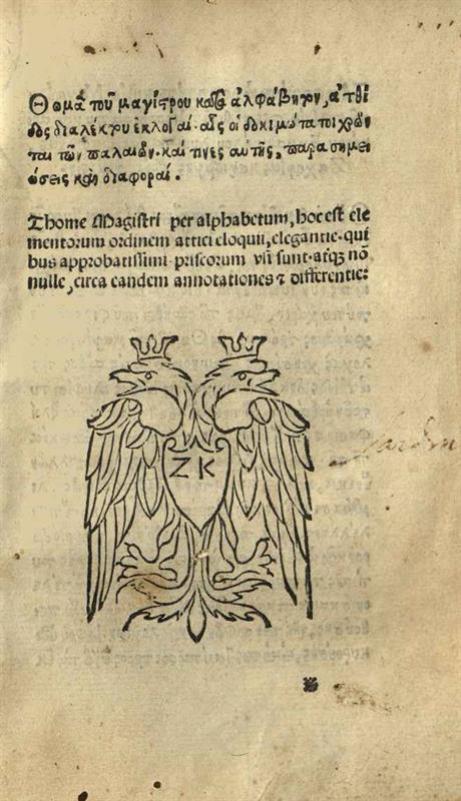 Θωμᾶ τοῦ μαγίστρου κατὰ ἀλφάβητον, ἀτθί
δος διαλέκτου ἐκλογαί· αἷς οἱ δοκιμώτατοι χρῶν
ται τῶν παλαιῶν· καί τινες αὐτῆς, παρασημει
ώσεις καὶ διαφοραί.
Thome Magistri per alphabetum, hoc est ele
mentorum ordinem attici eloquii, elegantie· qui
bus approbatissimi priscorum usi sunt· atq; nō
nulle, circa eandem annotationes ⁊ differentie:
ZK